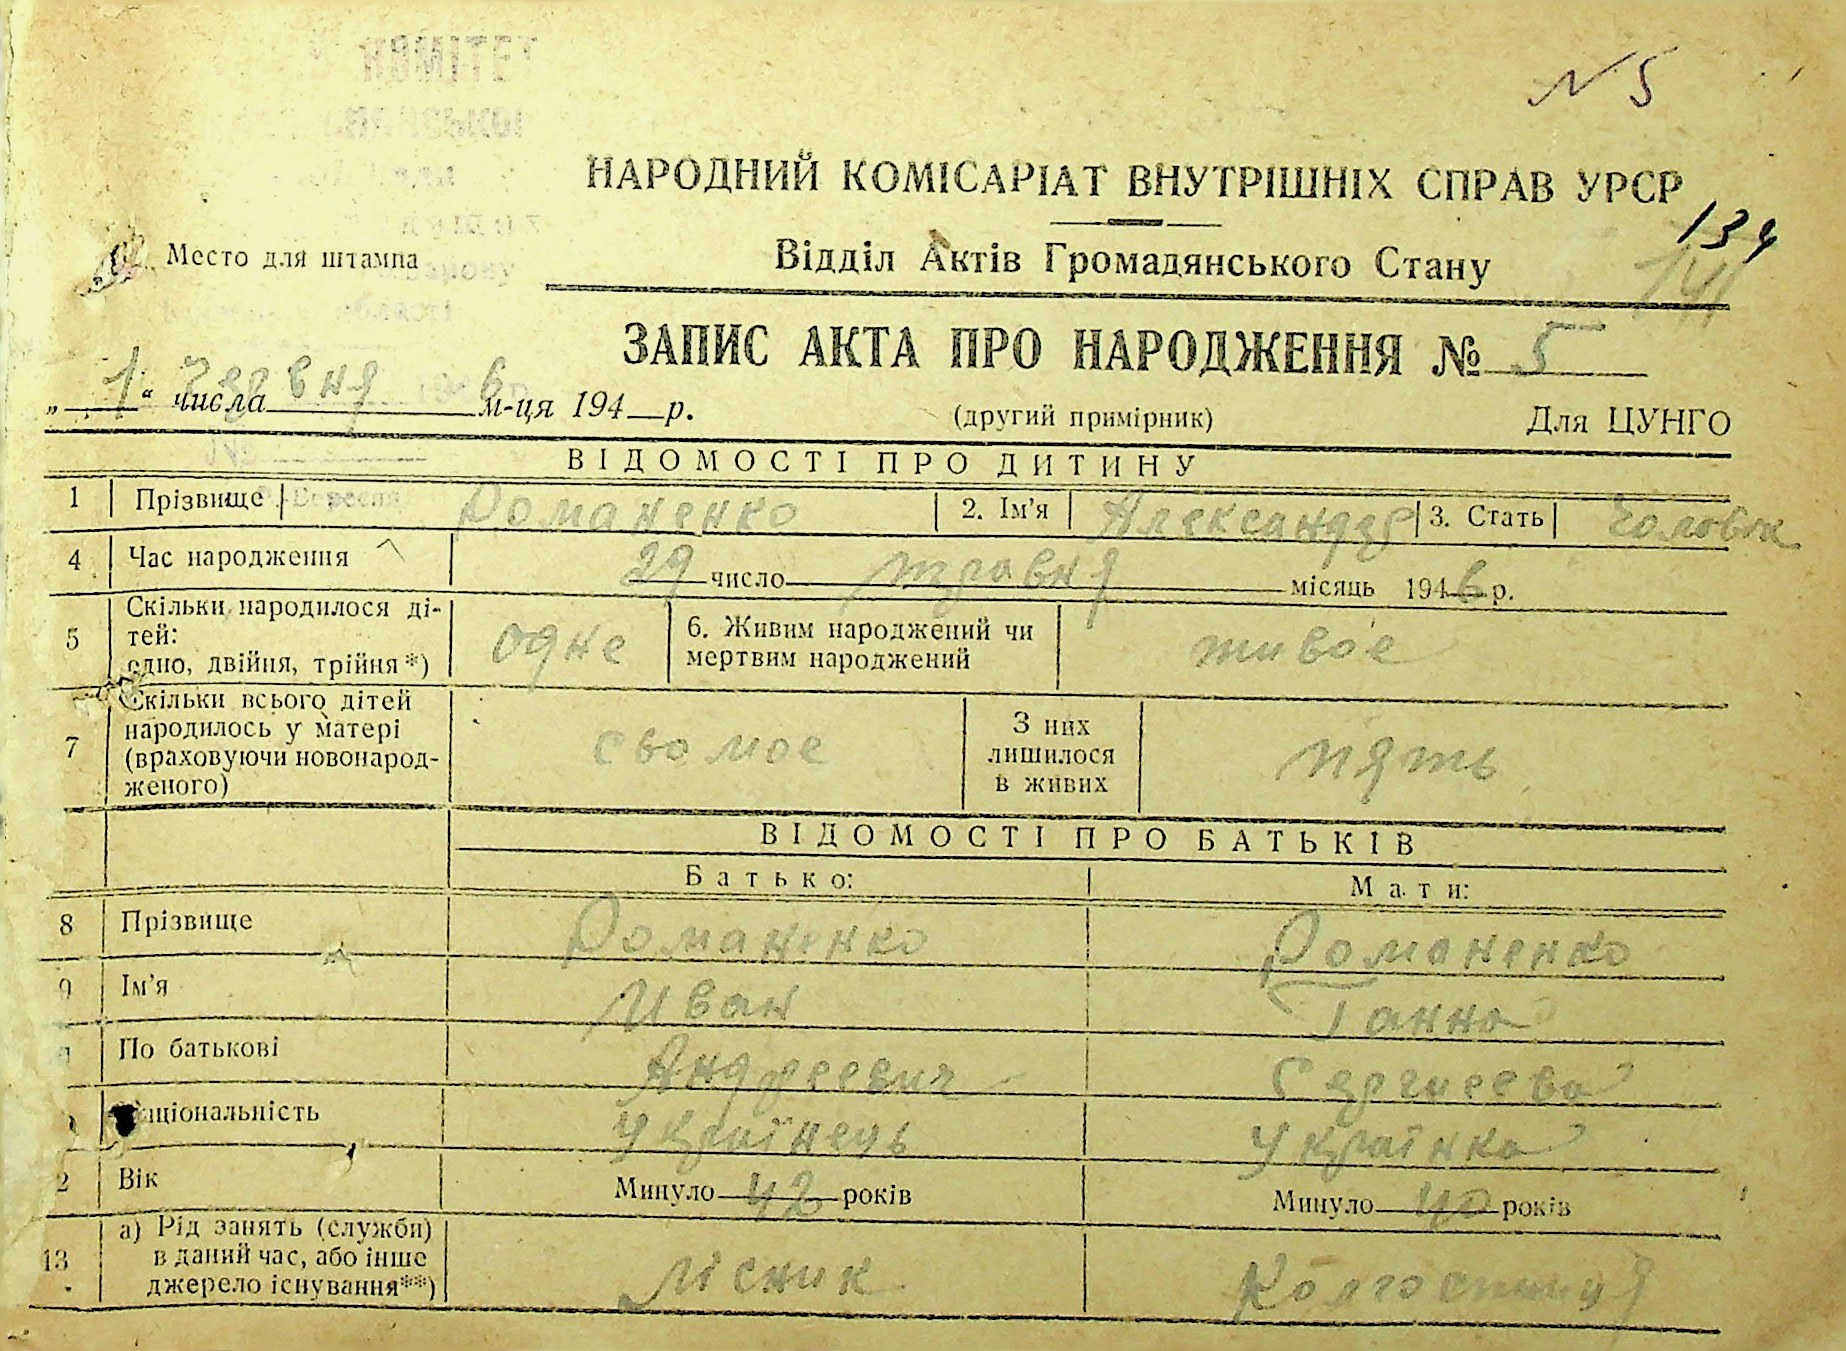 № 5
НАРОДНИЙ КОМІСАРІАТ ВНУТРІШНІХ СПРАВ УРСР
134
Место для штампа
Відділ Актів Громадянського Стану
141
ЗАПИС АКТА ПРО НАРОДЖЕННЯ № 5
„ 1 “ числа червня м-ця 194 6 р.
(другий примірник) Для ЦУНГО
ВІДОМОСТІ ПРО ДИТИНУ
1 Прізвище Романенко 2. Ім'я Александр 3. Стать Чоловік
4 Час народження 29 число травня місяць 1946 р.
5 Скільки народилося ді-
тей:
одно, двійня, трійня*) одне
6. Живим народжений чи
мертвим народжений живое
7 Скільки всього дітей
народилось у матері
(враховуючи новонарод-
женого) сьомое
З них
лишилося
в живих пять
ВІДОМОСТІ ПРО БАТЬКІВ
Батько: Мати:
8 Прізвище Романенко Романенко
9 Ім'я Иван Ганна
По батькові Андреевич Сергиеева
ціональність Українець Українка
2 Вік Минуло 42 років Минуло 40 років
13 а) Рід занять (служби)
в даний час, або інше
джерело існування**) лісник Колгоспниця